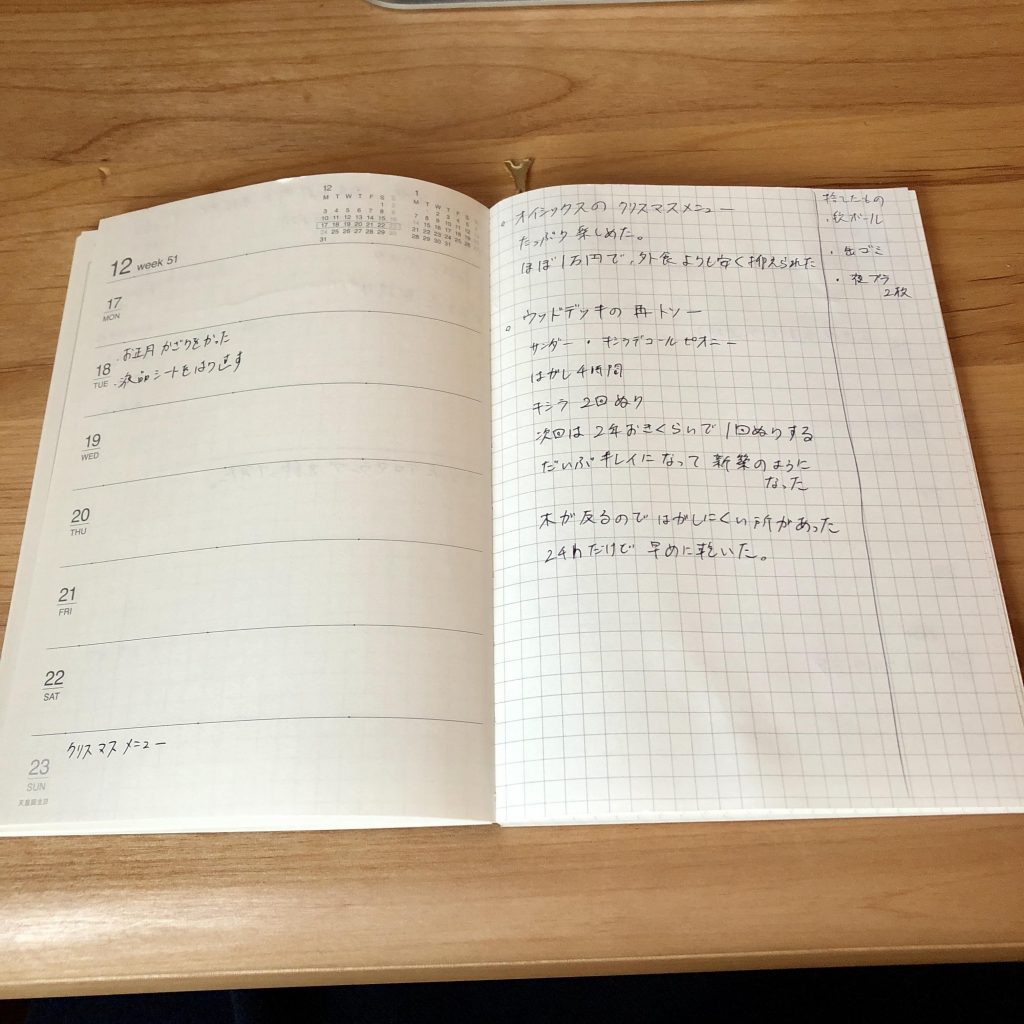 12 week 51
12
M T W T F S S
1 2
3 4 5 6 7 8 9
10 11 12 13 14 15 16
17 18 19 20 21 22 23
24 25 26 27 28 29 30
31
1
M T W T F S S
1 2 3 4 5 6
7 8 9 10 11 12 13
14 15 16 17 18 19 20
21 22 23 24 25 26 27
28 29 30 31
17
MON
18
TUE
・お正月かざりをかった
・液晶シートをはり直す
19
WED
20
THU
21
FRI
22
SAT
23
SUN
天皇誕生日
クリスマスメニュー
○ オイシックスの クリスマスメニュー
たっぷり楽しめた。
ほぼ1万円で、外食よりも安く抑えられた
○ ウッドデッキの再トソー
サンダー ・ キシラデコール ピオニー
はがし 4時間
キシラ 2回ぬり
次回は 2年おきくらいで 1回ぬりする
だいぶキレイになって 新築のように
なった
木が反るので はがしにくい所があった
24hだけで 早めに乾いた。
捨てたもの
・段ボール
・生ゴミ
・廃プラ
2枚